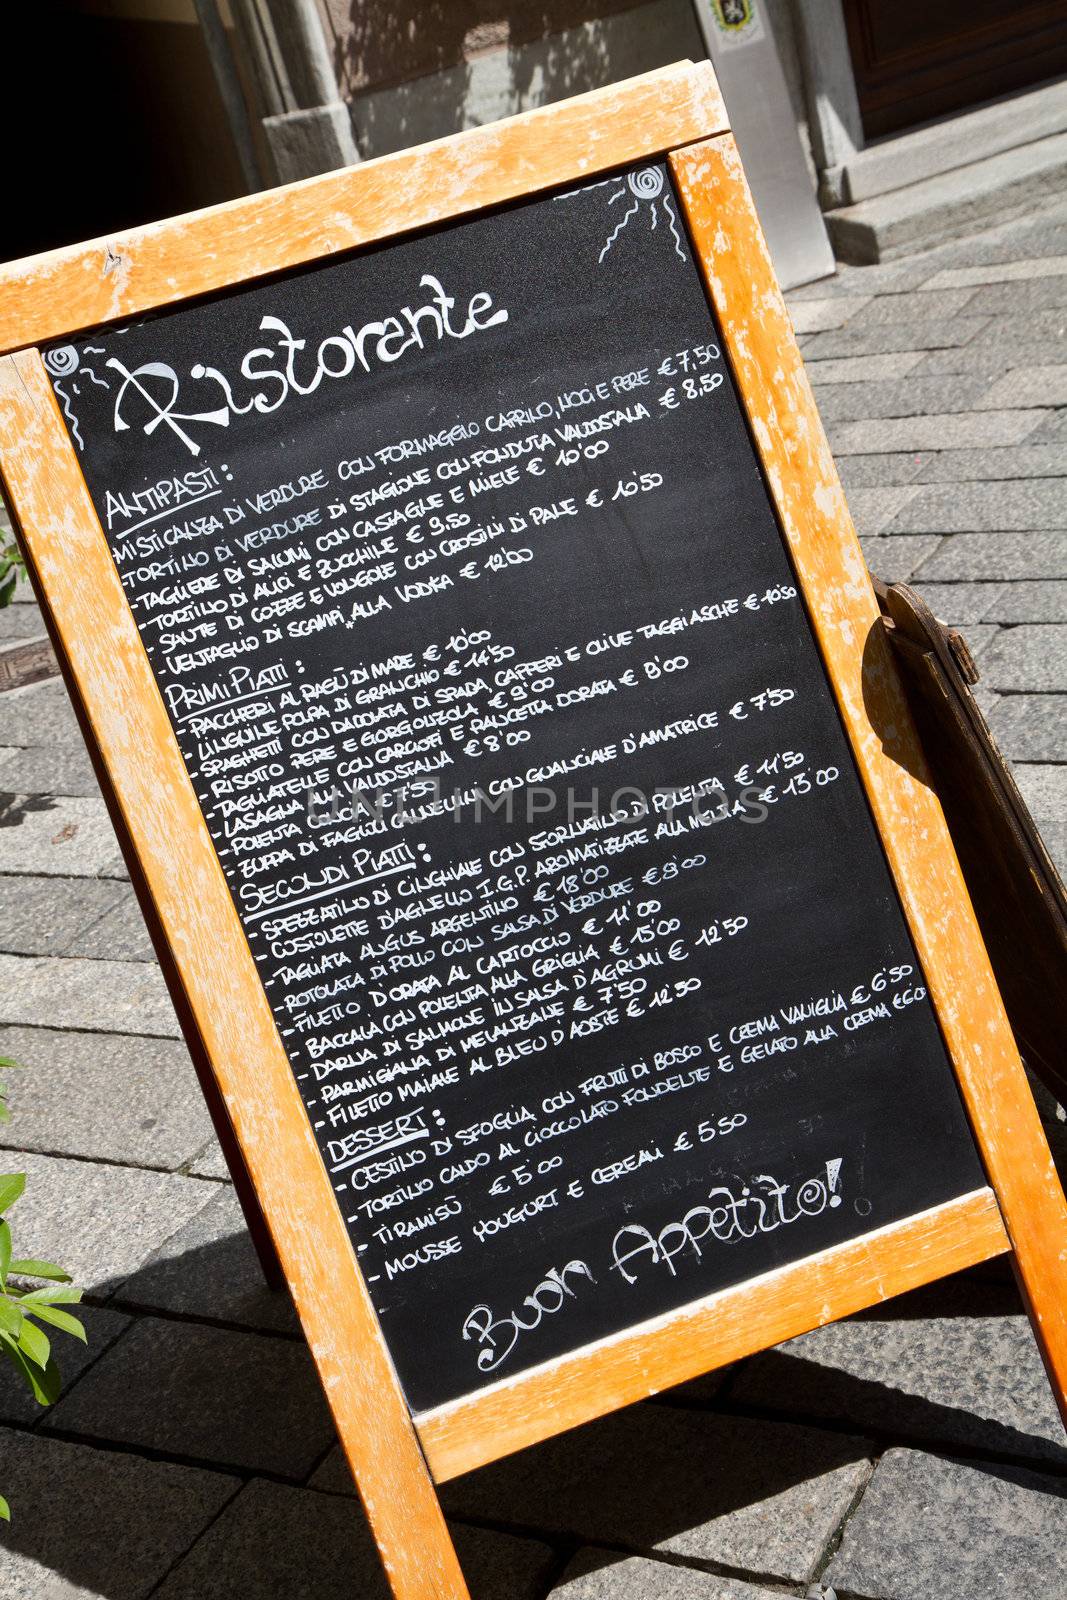 Ristorante
ANTIPASTI:
-MISTICANZA DI VERDURE CON FORMAGGIO CAPRINO, NOCI E PERE € 7,50
-TORTINO DI VERDURE DI STAGIONE CON FONDUTA VALDOSTANA € 8,50
-TAGLIERE DI SALUMI CON CASTAGNE E MIELE € 10'00
-TORTINO DI ALICI E ZUCCHINE € 9,50
-SAUTE DI COZZE E VONGOLE CON CROSTINI DI PANE € 10'50
-VENTAGLIO DI SCAMPI ALLA VODKA € 12'00
PRIMI PIATTI:
-PACCHERI AL RAGÙ DI MARE € 10'00
-LINGUINE POLPA DI GRANCHIO € 14'50
-SPAGHETTI CON DADOLATA DI SPADA, CAPPERI E OLIVE TAGGIASCHE € 10'50
-RISOTTO PERE E GORGONZOLA € 9'00
-TAGLIATELLE CON CARCIOFI E PANCETTA DORATA € 9'00
-LASAGNA VALDOSTANA € 8'00
-POLENTA 7'50
-ZUPPA DI FAGIOLI CANNELLINI CON GUANCIALE D'AMATRICE € 7'50
SECONDI PIATTI:
-SPEZZATINO DI CINGHIALE CON SFORMATINO DI POLENTA € 11'50
-COSTOLETTE D'AGNELLO I.G.P. AROMATIZZATE ALLA MENTA € 13'00
-TAGLIATA ANGUS ARGENTINO € 18'00
-ROTOLATA DI POLLO CON SALSA DI VERDURE € 9'00
-FILETTO D'ORATA AL CARTOCCIO € 11'00
-BACCALÀ CON POLENTA ALLA GRIGLIA € 15'00
-DARNA DI SALMONE IN SALSA D'AGRUMI € 12'50
-PARMIGIANA DI MELANZANE € 7'50
-FILETTO MAIALE AL BLEU D'AOSTE € 12'50
DESSERT:
-CESTINO DI SFOGLIA CON FRUTTI DI BOSCO E CREMA VANIGLIA € 6'50
-TORTINO CALDO AL CIOCCOLATO FONDENTE E GELATO ALLA CREMA
-TIRAMISÙ € 5'00
-MOUSSE YOUGURT E CEREALI € 5'50
Buon Appetito!
UNLIMPHOTOS